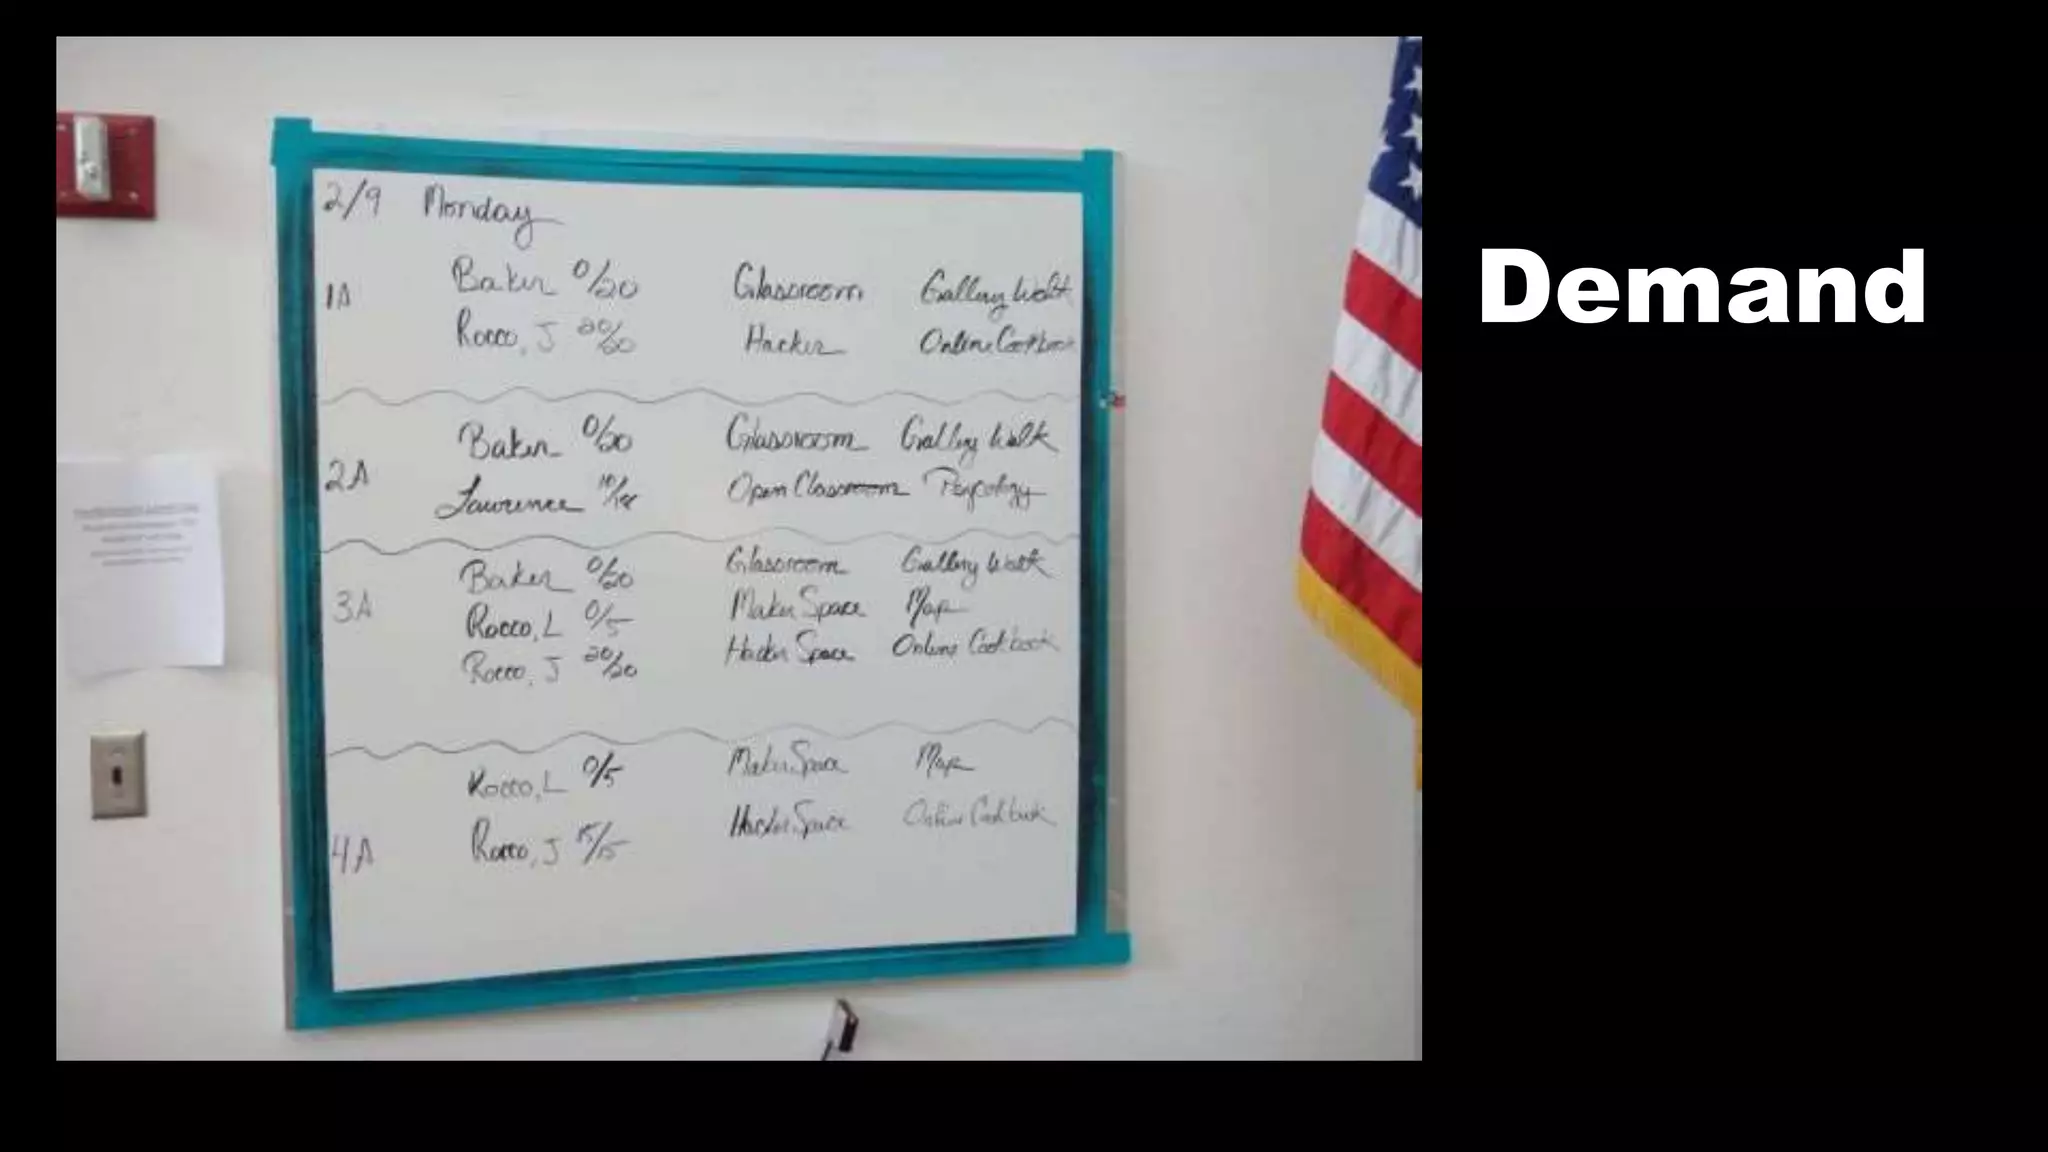 2/9 Monday
1A Baker 0/20 Glassroom Gallery Walk
Rocco, J 20/20 Hacker Online Cookbook
2A Baker 0/20 Glassroom Gallery Walk
Lawrence 18 Open Classroom
3A Baker 0/20 Glassroom Gallery Walk
Rocco, L 0/5 Maker Space Map
Rocco, J 20/20 Hacker Space Online Cookbook
4A Rocco, L 0/5 Maker Space Map
Rocco, J 15/15 Hacker Space Online Cookbook
Demand